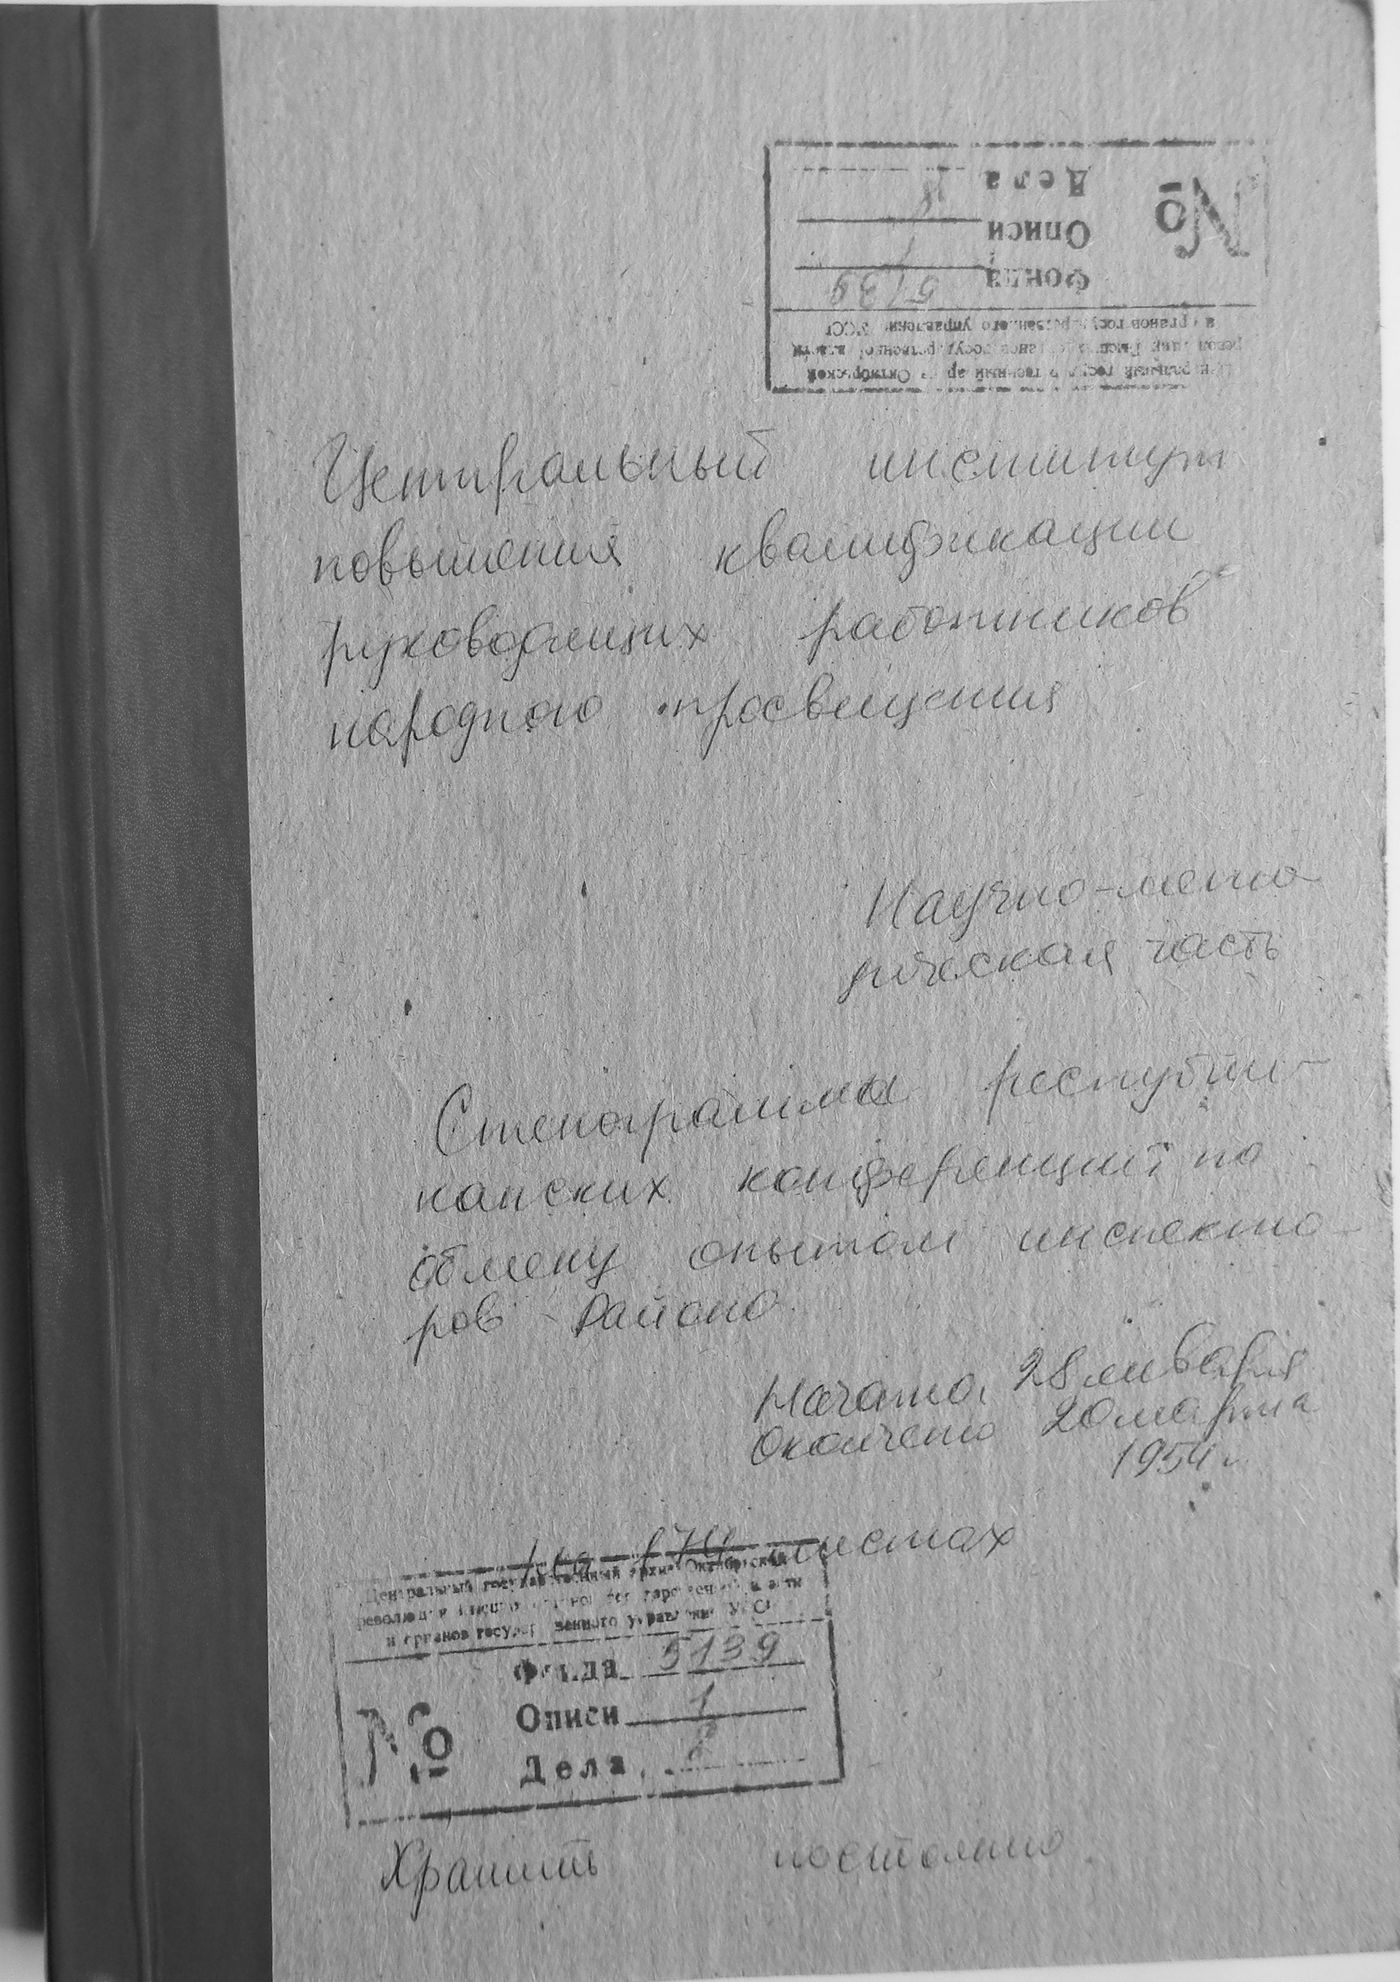 Центральный государственный архив Октябрьской
революции высших органов государственной власти
и органов государственного управления УССР
Фонда 5139
Описи 1
Дела 8
№
Центральный институт
повышения квалификации
руководящих работников
народного просвещения
Научно-мето
дическая часть
Стенограмма республи-
канских конференций по
обмену опытом инспекто-
ров Районо
Начато, 28 января
Окончено 20 марта
1954 г.
На листах
Центральный государственный архив Октябрьской
революции высших органов государственной власти
и органов государственного управления УССР
Фонда 5139
Описи 1
Дела 8
№
Хранить постоянно